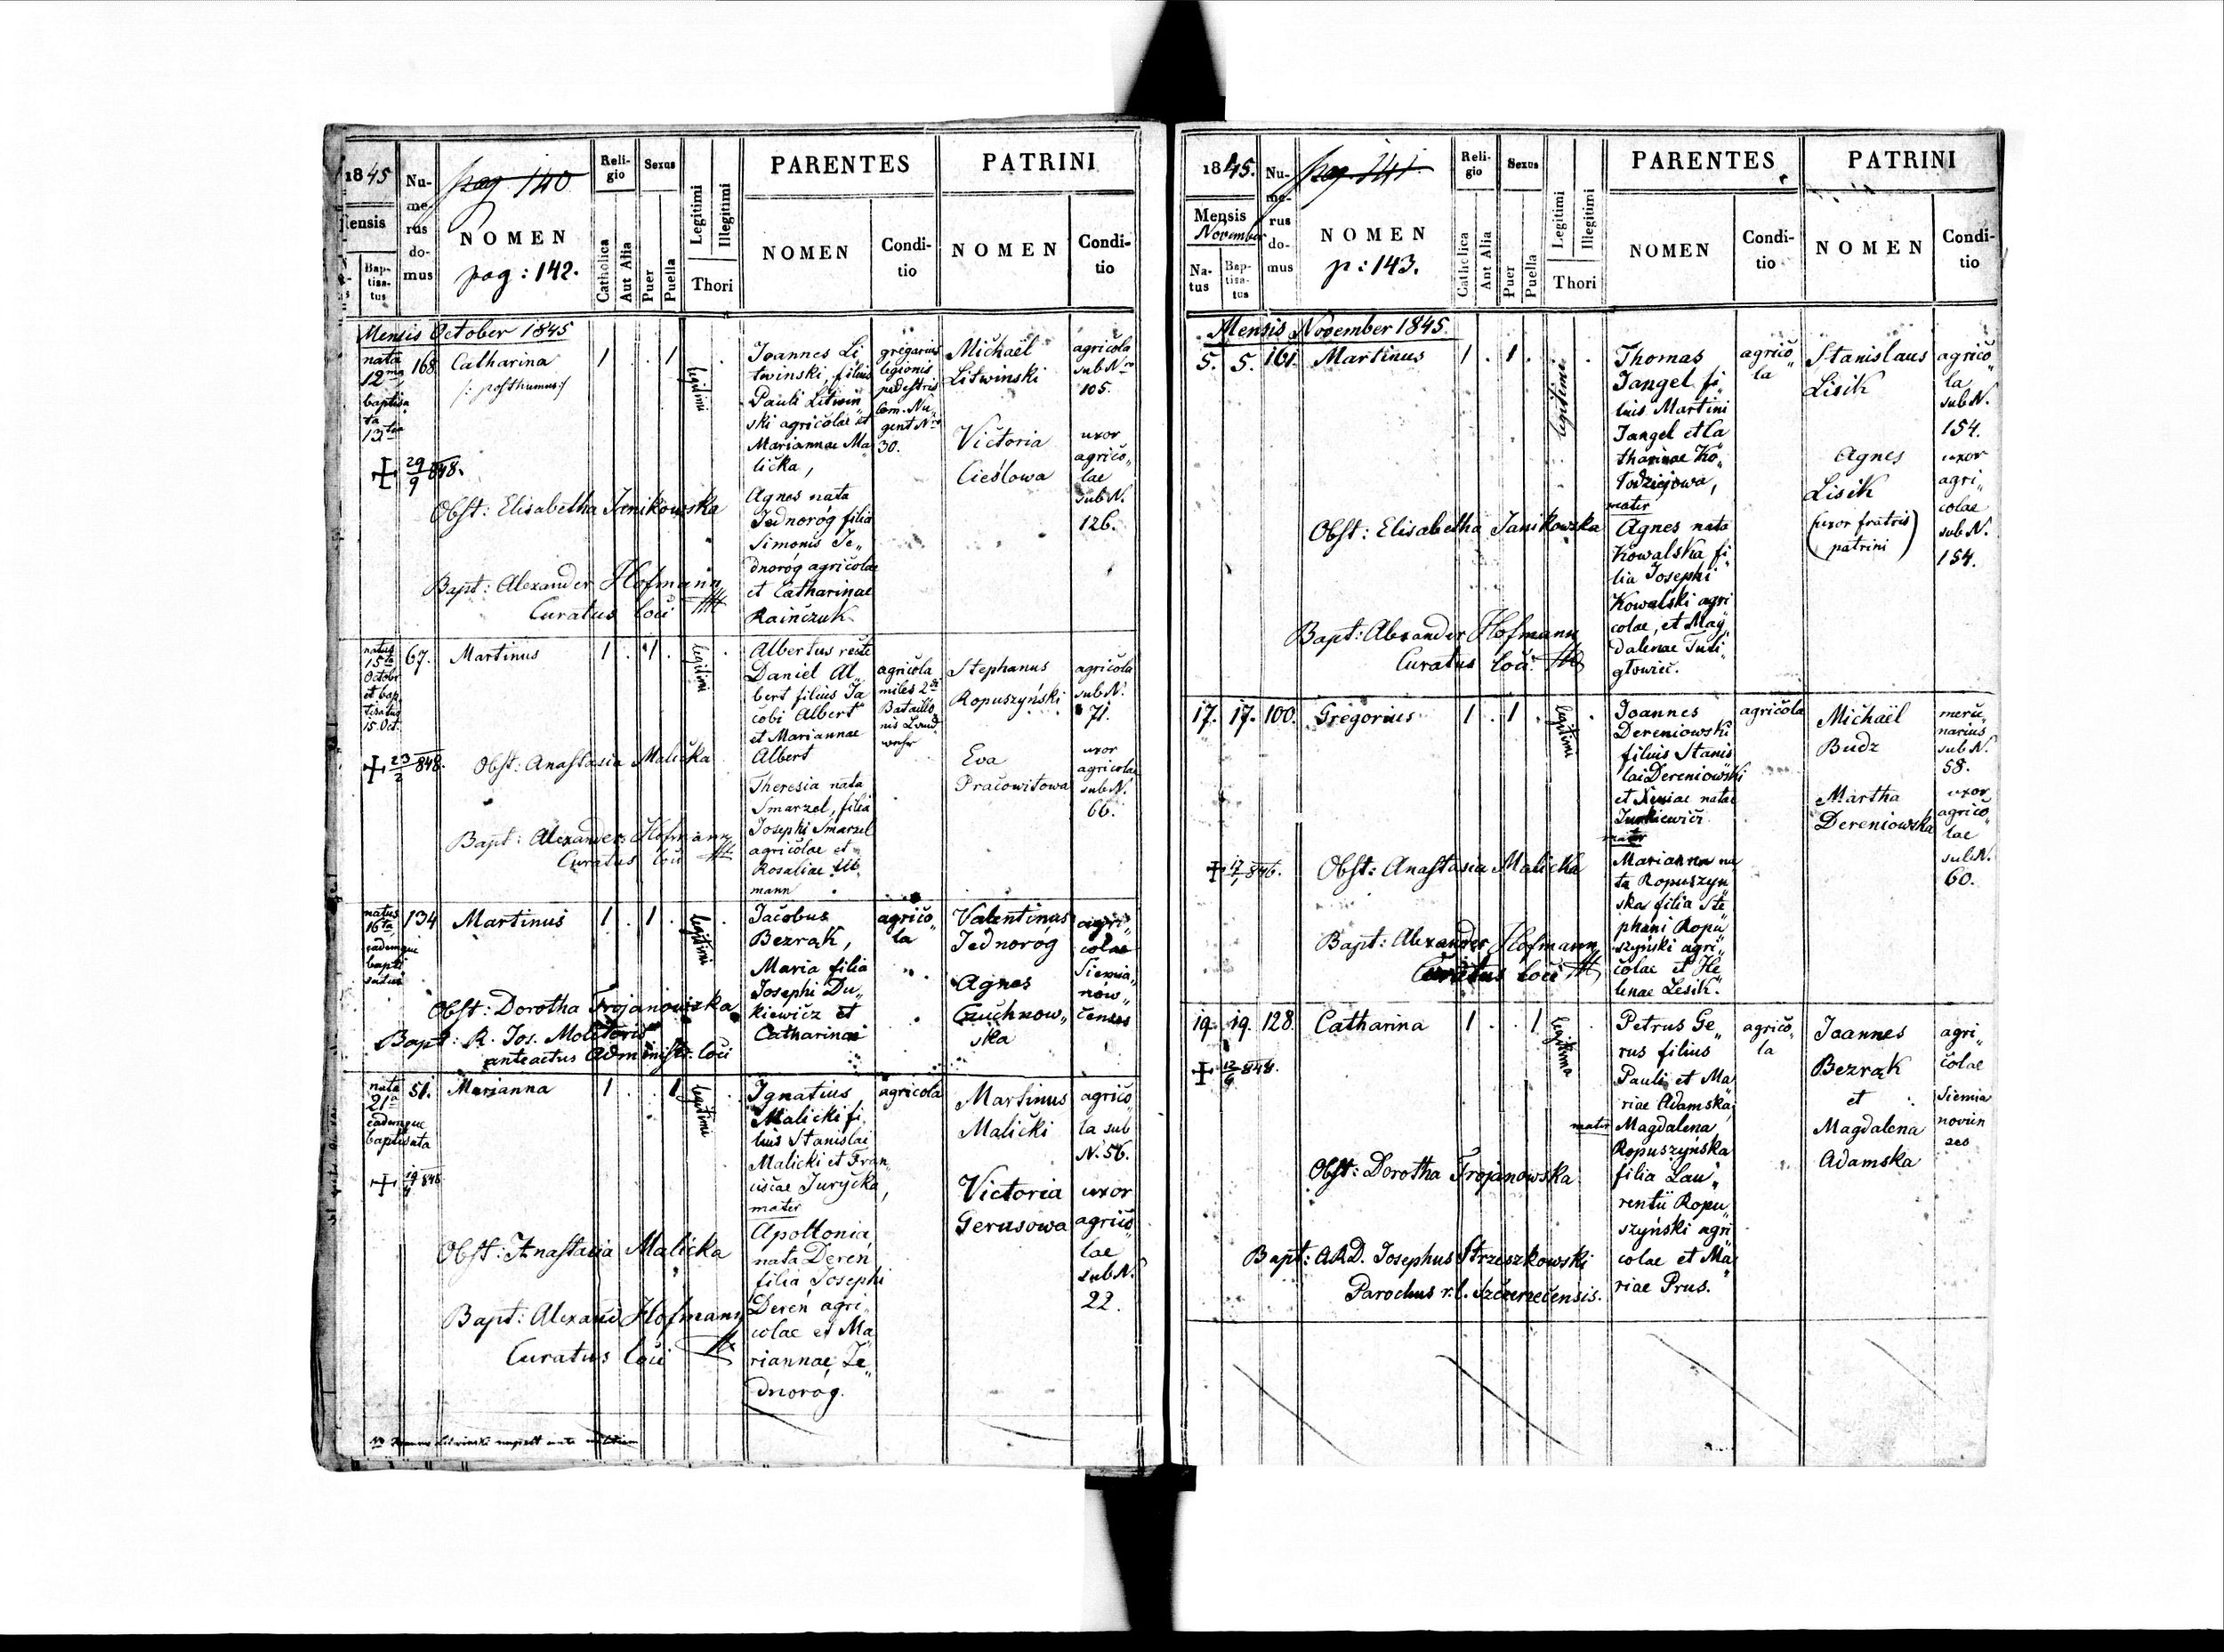 1845
Mensis
Bap-
tisa-
tus
Nu-
me-
rus
do-
mus
pag. 140
NOMEN
pag: 142.
Reli-
gio
Catholica
Aut Alia
Sexus
Puer
Puella
Legitimi
Illegitimi
Thori
PARENTES
NOMEN
Condi-
tio
PATRINI
NOMEN
Condi-
tio
Mensis October 1845
nata
12ma
baptisa
ta
13tia
168
Catharina
/: posthumus:/
1 . . 1 .
legitimi
Joannes Li„
twinski, filius
Pauli Litwin„
ski agricolae et
Mariannae Ma„
licka,
Agnes nata
Jednoróg filia
Simonis Je„
dnoróg agricolae
et Catharinae
Rainczuk
gregarius
legionis
pedestris
Com. Nu„
gent Nro
30.
Michaël
Litwinski
Victoria
Cieślowa
agricola
sub Nro
105.
uxor
agrico„
lae
sub N.
126.
+ 29/9 848.
Obst: Elisabetha Janikowska
Bapt: Alexander Hofmann
Curatus loci
natus
15ta
Octobr
et bap
tisatus
15. Oct.
67.
Martinus
1 . 1 . .
legitimi
Albertus recte
Daniel Al„
bert filius Ja„
cobi Albert
et Mariannae
Albert
Theresia nata
Smarzel, filia
Josephi Smarzel
agricolae et
Rosaliae Ul„
mann
agricola
miles 2di
Bataillo
nis Land„
wehr
Stephanus
Ropuszyński
Eva
Pracowitowa
agricola
sub N.
71.
uxor
agricolae
sub N.
66.
+ 23/2 848.
Obst: Anastasia Malicka
Bapt: Alexander Hofmann
Curatus loci
natus
16ta
eademque
bapti
satus
134
Martinus
1 . 1 . .
legitimi
Jacobus
Bezrąk,
Maria filia
Josephi Du„
kiewicz et
Catharinae
agrico„
la
Valentinus
Jednoróg
Agnes
Czuchnow„
ska
agri„
colae
Siemia„
now„
censes
Obst: Dorotha Trojanowska
Bapt: R. Jos. Moletoris
anteactus Administr. loci
nata
21a
eademque
baptisata
51.
Marianna
1 . . 1 .
legitimi
Ignatius
Malicki fi„
lius Stanislai
Malicki et Fran„
ciscae Jurycka,
mater
Apollonia
nata Dereń
filia Josephi
Dereń agri„
colae et Ma„
riannae Je„
dnoróg.
agricola
Martinus
Malicki
Victoria
Gerusowa
agrico„
la sub
N. 56.
uxor
agrico„
lae
sub N.
22.
Obst: Anastasia Malicka
Bapt: Alexand Hofmann
Curatus loci
1845.
Mensis
November
Na-
tus
Bap-
tisa-
tus
Nu-
me-
rus
do-
mus
pag. 141.
NOMEN
p: 143.
Reli-
gio
Catholica
Aut Alia
Sexus
Puer
Puella
Legitimi
Illegitimi
Thori
PARENTES
NOMEN
Condi-
tio
PATRINI
NOMEN
Condi-
tio
Mensis November 1845.
5. 5. 161.
Martinus
1 . 1 . .
legitimi
Thomas
Jangel fi„
lius Martini
Jangel et Ca„
tharinae Ko„
łodziejowa,
mater
Agnes nata
Kowalska fi„
lia Josephi
Kowalski agri
colae, et Mag„
dalenae Tuli„
głowicz.
agrico„
la
Stanislaus
Lisik
Agnes
Lisik
(uxor fratris
patrini)
agrico„
la
sub N.
154.
uxor
agri„
colae
sub N.
154.
Obst: Elisabetha Janikowska
Bapt: Alexander Hofmann
Curatus loci
17. 17. 100.
Gregorius
1 . 1 . .
legitimi
Joannes
Dereniowski
filius Stanis„
lai Dereniowski
et Xeniae natae
Jurkiewicz
mater
Marianna na„
ta Ropuszyn„
ska filia Ste„
phani Ropu„
szyński agri„
colae et He„
lenae Lesik.
agricola
Michaël
Budz
Martha
Dereniowska
merce„
narius
sub N.
58.
uxor
agrico„
lae
sub N.
60.
Obst: Anastasia Malicka
Bapt: Alexander Hofmann
Curatus loci
19. 19. 128.
Catharina
1 . . 1 .
legitima
Petrus Ge„
rus filius
Pauli et Ma„
riae Adamska,
mater Magdalena
Ropuszyńska
filia Lau„
rentii Ropu„
szyński agri
colae et Ma„
riae Prus.
agrico„
la
Joannes
Bezrąk
et
Magdalena
Adamska
agri„
colae
Siemia
novien
ses
Obst: Dorotha Trojanowska
Bapt: A.R.D. Josephus Strzeszkowski
Parochus r. l. Szczerzecensis.